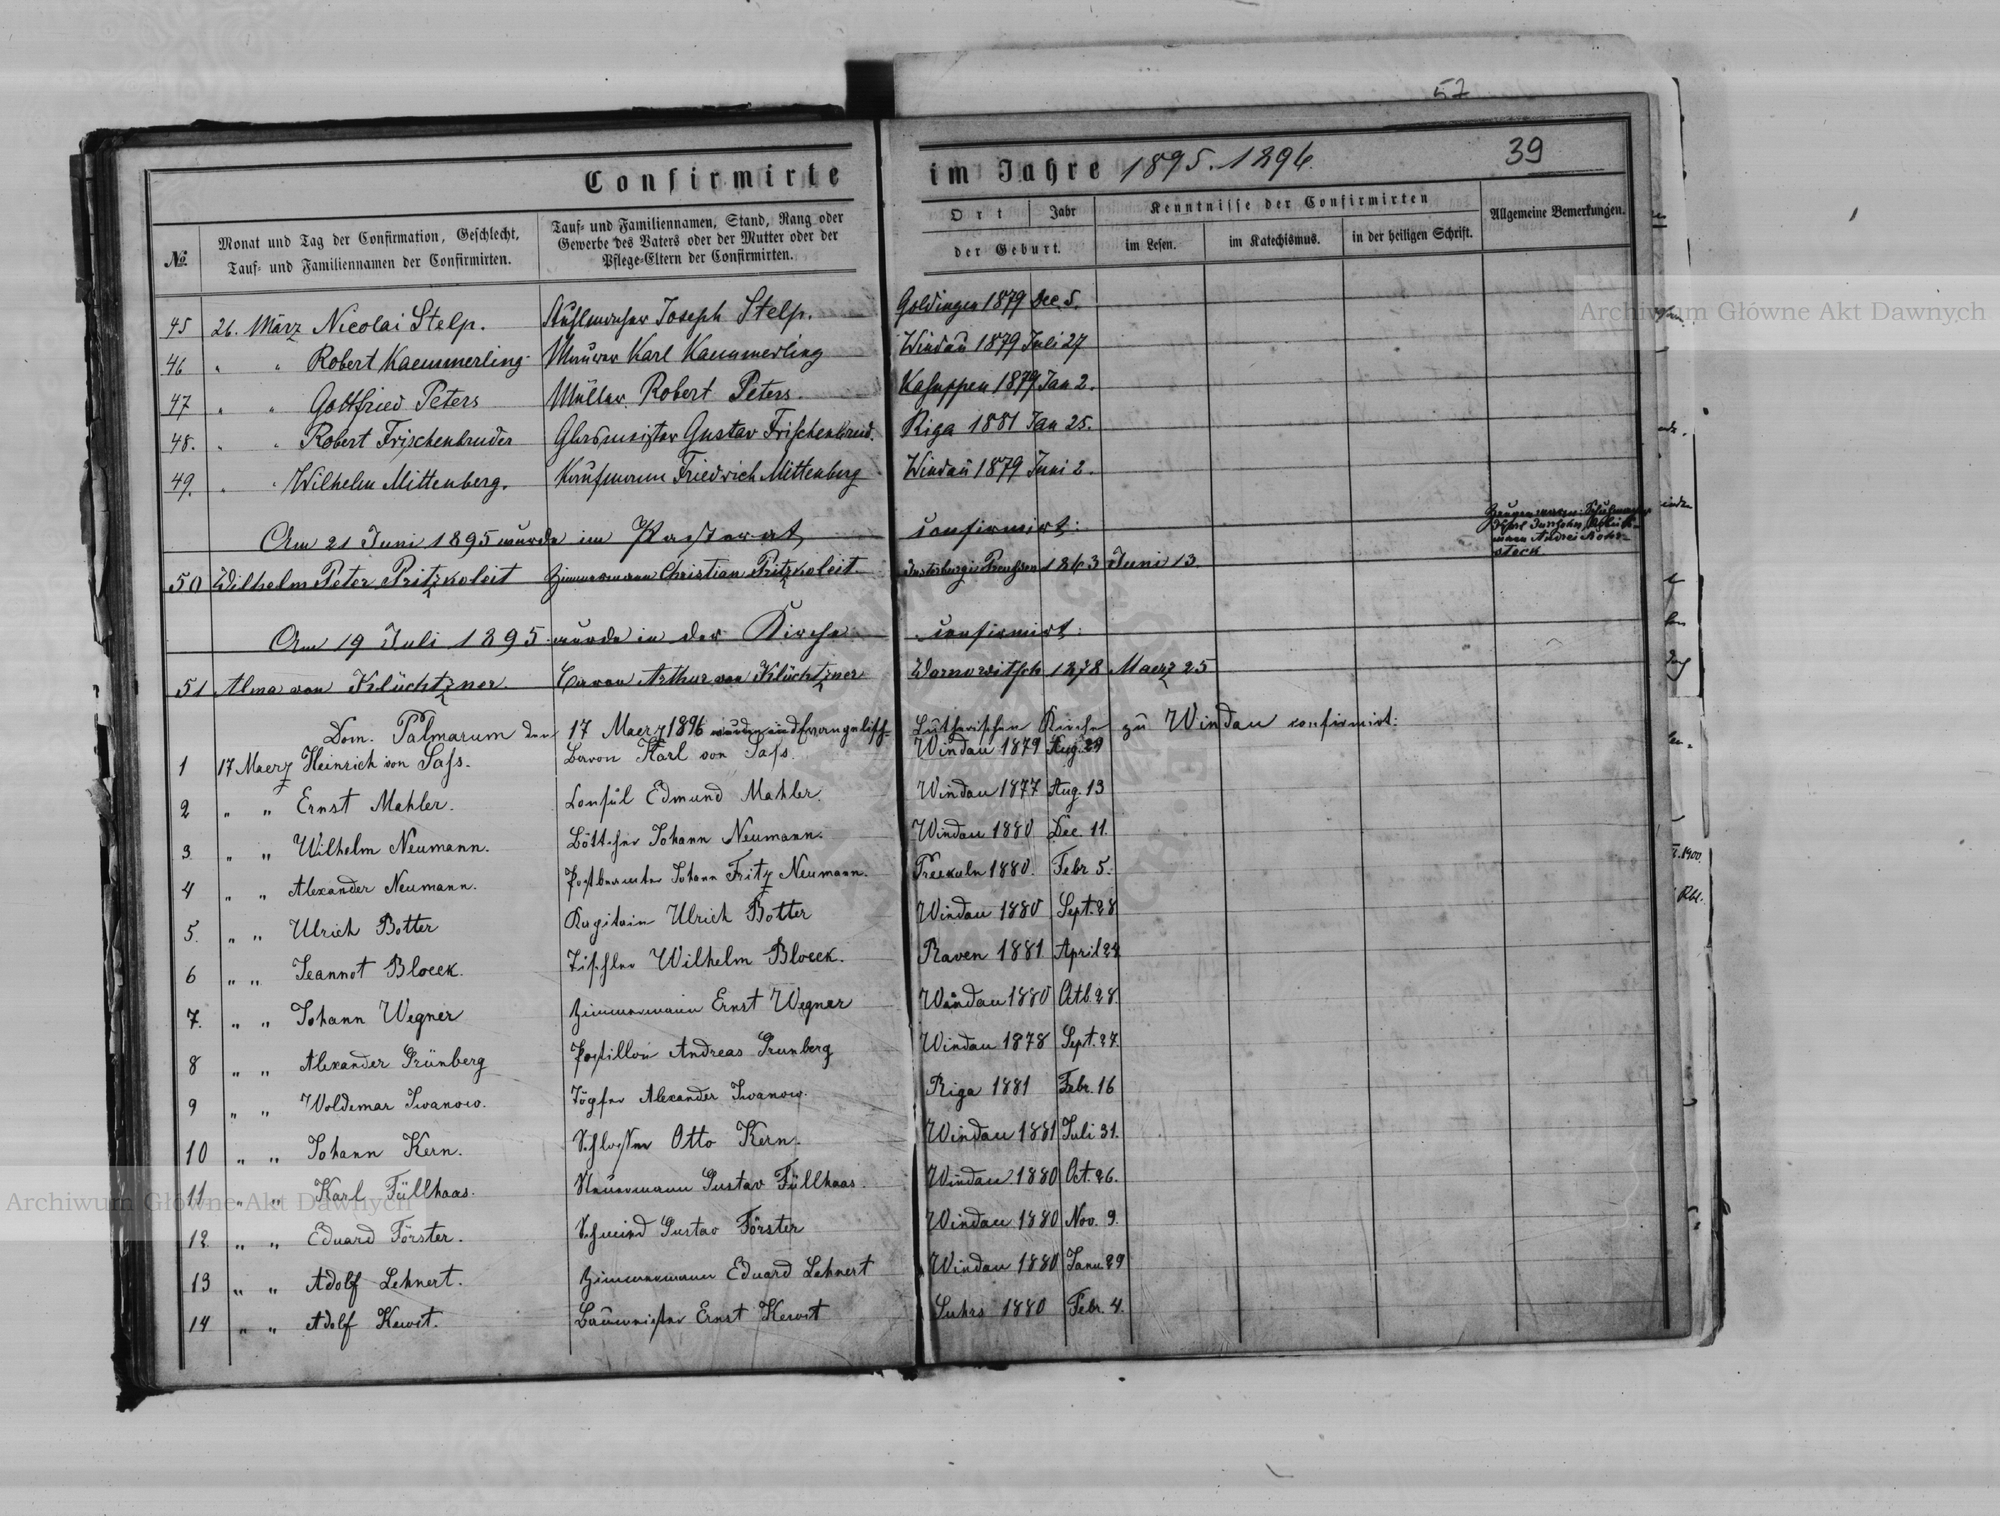 57
Confirmirte im Jahre 1895. 1896.
39
No. Monat und Tag der Confirmation, Geschlecht, Tauf= und Familiennamen der Confirmirten. Tauf= und Familiennamen, Stand, Rang oder Gewerbe des Vaters oder der Mutter oder der Pflege=Eltern der Confirmirten. Ort Jahr der Geburt. Kenntnisse der Confirmirten im Lesen. im Katechismus. in der heiligen Schrift. Allgemeine Bemerkungen.
45 26. März Nicolai Stelp. Stuhlmacher Joseph Stelp. Goldingen 1879 Dec. 5.
46 " " Robert Kaemmerling Maurer Karl Kaemmerling Windau 1879 Juli 27
47 " " Gottfried Peters Müller Robert Peters. 1879 Jan 2.
48. " " Robert Frischenbruder Glasmeister Gustav Frischenbrud. Riga 1881 Jan 25.
49. " " Wilhelm Mittenberg. Kaufmann Friedrich Mittenberg Windau 1879 Juni 2.
Am 21 Juni 1895 wurde im Pastorat confirmirt:
50 Wilhelm Peter Pritzkoleit Zimmermann Christian Pritzkoleit Preussen 1863 Juni 13. Zeugen waren:
Am 19 Juli 1895 wurde in der Kirche confirmirt:
51 Alma von Klüchtzner. Baron Arthur von Klüchtzner Wornowitsch 1878 Maerz 25
Dom. Palmarum den 17 Maerz 1896 wurden in d Evangelisch= Lutherischen Kirche zu Windau confirmirt:
1 17 Maerz Heinrich von Sass. Baron Karl von Sass. Windau 1879 Aug. 29
2 " " Ernst Mahler. Consul Edmund Mahler. Windau 1877 Aug. 13
3 " " Wilhelm Neumann. Böttcher Johann Neumann. Windau 1880 Dec. 11.
4 " " Alexander Neumann. Postbeamter Johann Fritz Neumann. Preekuln 1880. Febr 5.
5. " " Ulrich Botter Kapitain Ulrich Botter Windau 1880 Sept. 28
6 " " Jeannot Bloeck. Tischler Wilhelm Bloeck. Raven 1881 April 24
7. " " Johann Wegner Zimmermann Ernst Wegner Windau 1880 Octb. 28.
8 " " Alexander Grünberg Postillon Andreas Grunberg Windau 1878 Sept. 27.
9 " " Woldemar Iwanow. Töpfer Alexander Iwanow. Riga 1881 Febr. 16
10 " " Johann Kern. Schlosser Otto Kern. Windau 1881 Juli 31.
11 " " Karl Füllhaas. Steuermann Gustav Füllhaas. Windau 1880 Oct. 26.
12 " " Eduard Förster. Schmied Gustav Förster Windau 1880 Nov. 9.
13 " " Adolf Lehnert. Zimmermann Eduard Lehnert Windau 1880 Janu. 29
14 " " Adolf Kewit. Baumeister Ernst Kewit Suhrs 1880 Febr. 4.
Archiwum Główne Akt Dawnych
Archiwum Główne Akt Dawnych